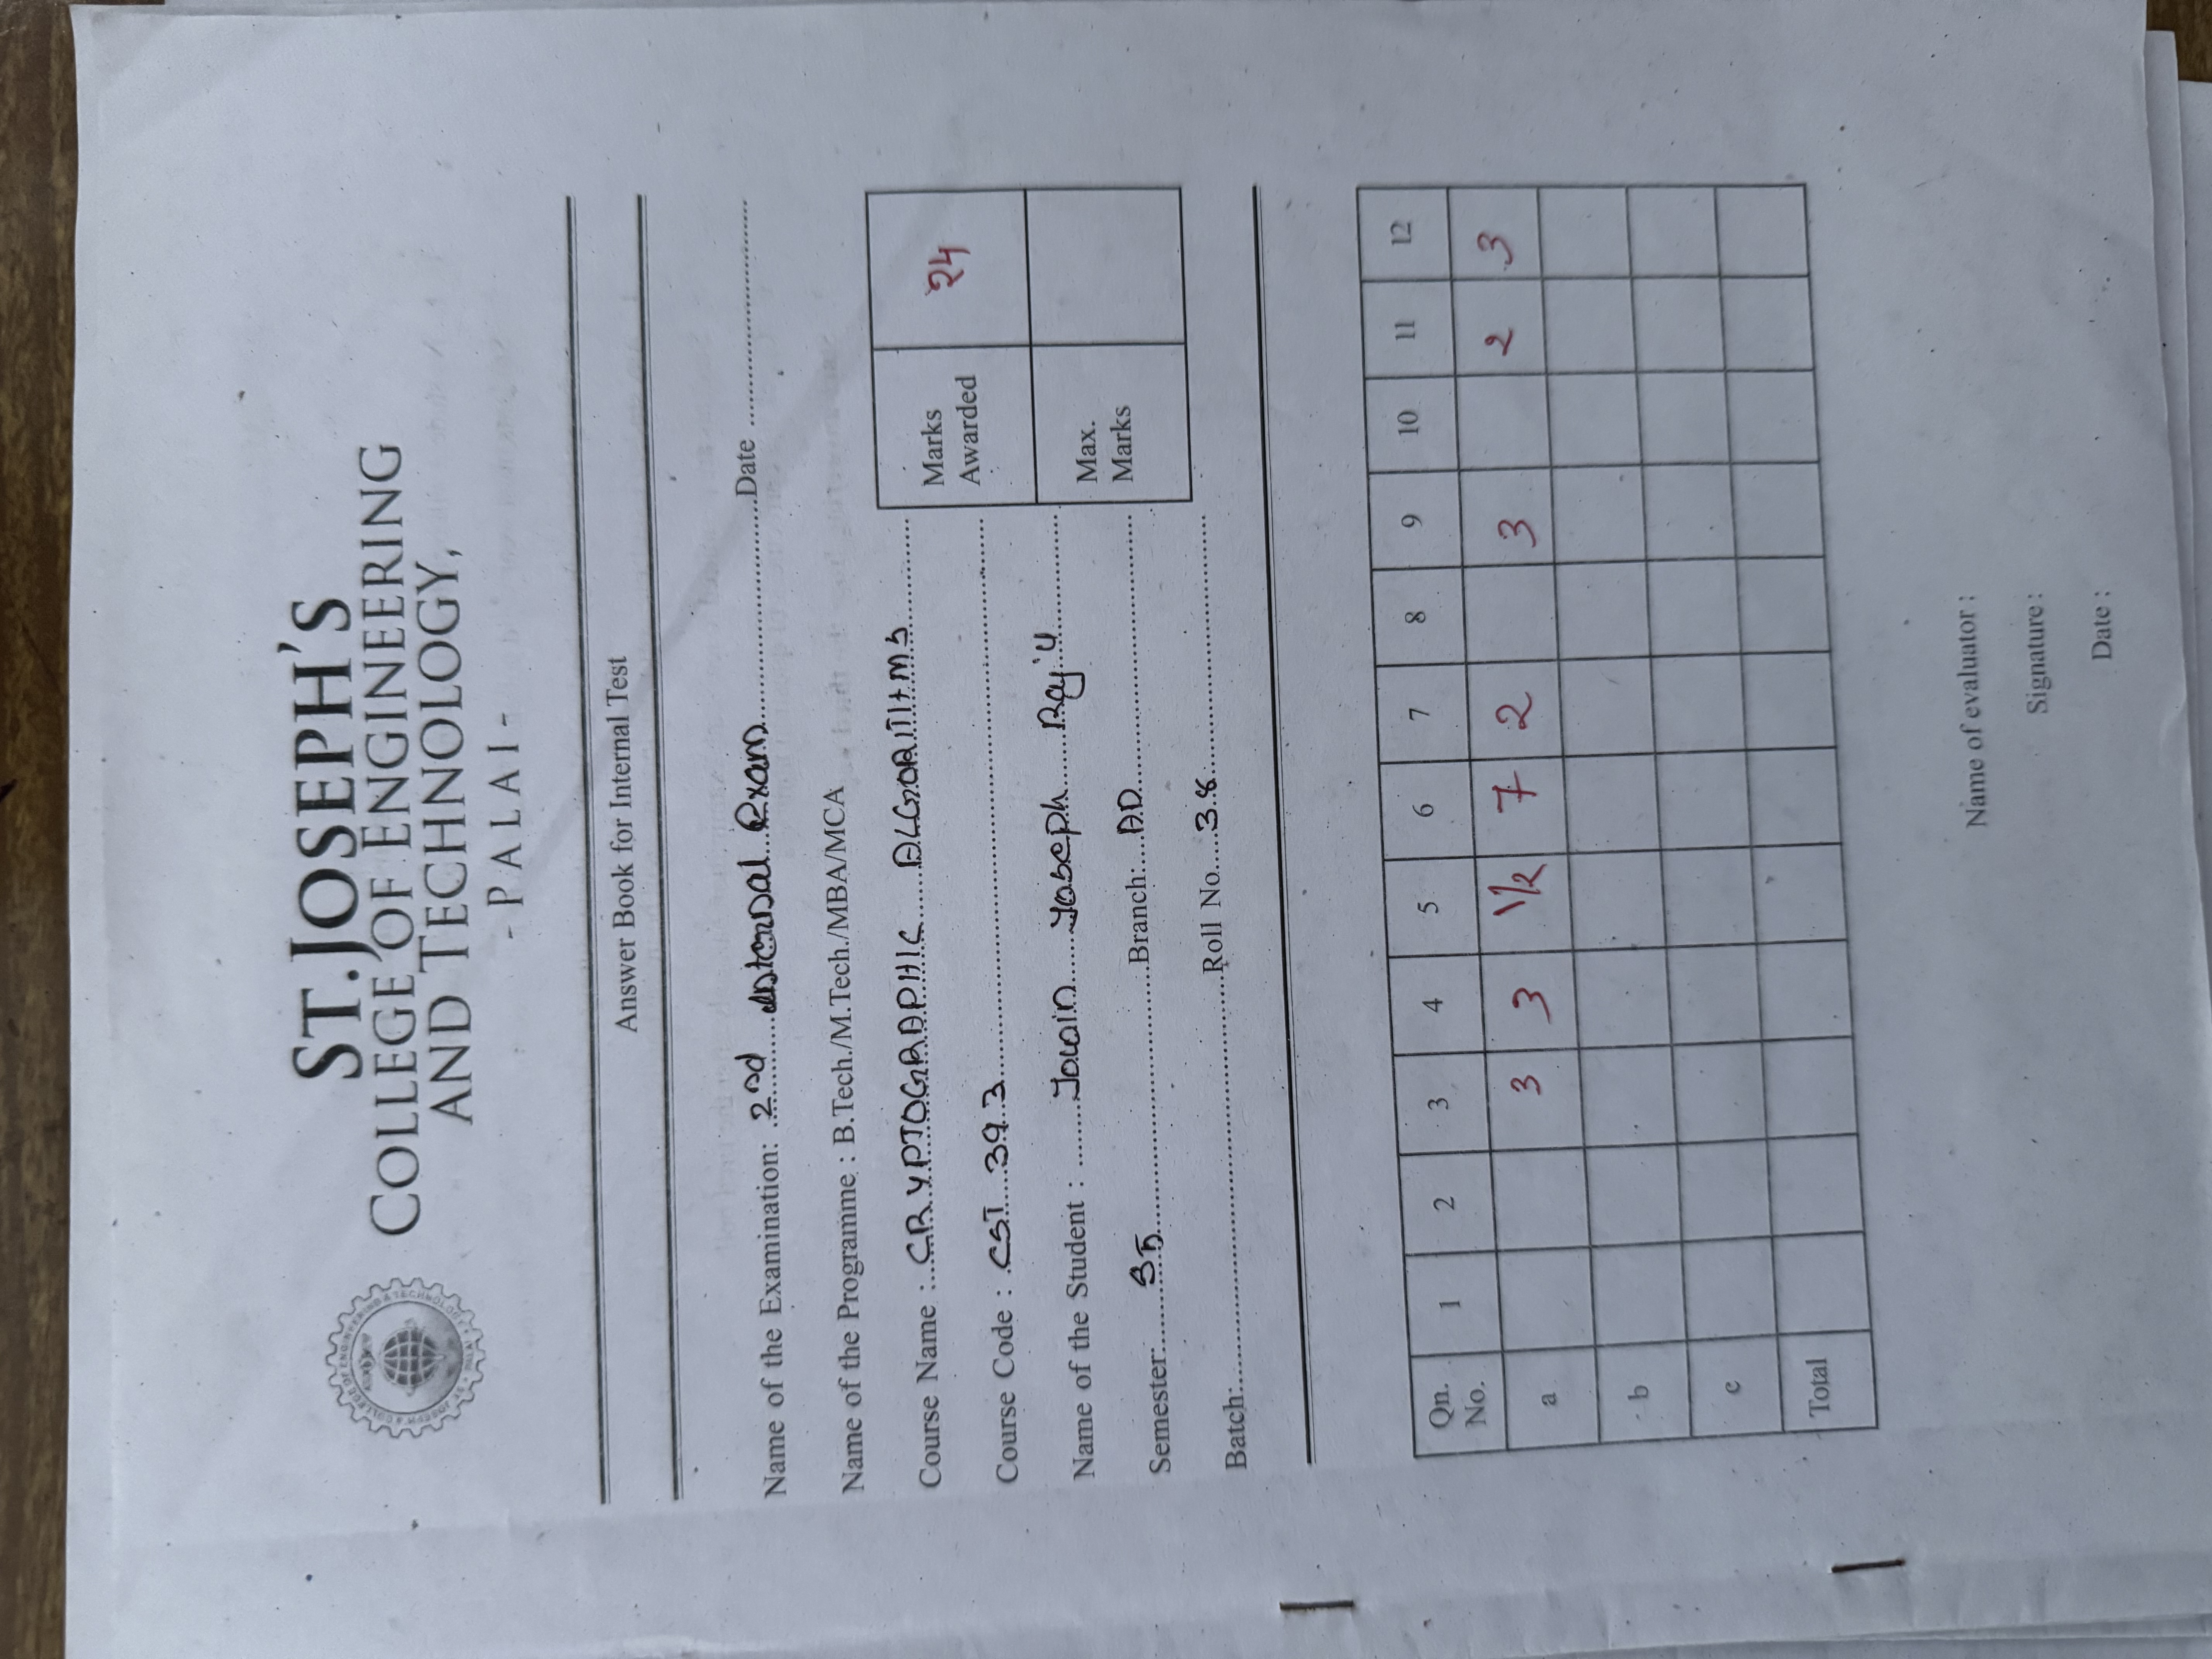 ST.JOSEPH'S
COLLEGE OF ENGINEERING
AND TECHNOLOGY,
- PALAI -
Answer Book for Internal Test
Name of the Examination: 2nd Internal Exam Date
Name of the Programme : B.Tech./M.Tech./MBA/MCA
Course Name : CRYPTOGRAPHIC ALGORITHMS
Marks Awarded 24
Course Code : CST 393
Name of the Student : Jowin Joseph Raju
Max. Marks
Semester: S5 Branch: AD
Batch: Roll No. 38
Qn. No. 1 2 3 4 5 6 7 8 9 10 11 12
a 3 3 1/2 7 2 3 2 3
b
c
Total
Name of evaluator :
Signature :
Date :